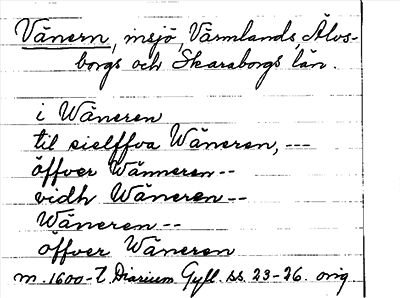 Vänern, insjö, Värmlands, Älvs-
borgs och Skaraborgs län.
i Wäneren
til sielffva Wäneren, ---
öffver Wänneren --
vidh Wäneren --
Wäneren --
öffver Wäneren
m. 1600-t. Diarium Gyll. ss. 23-26. orig